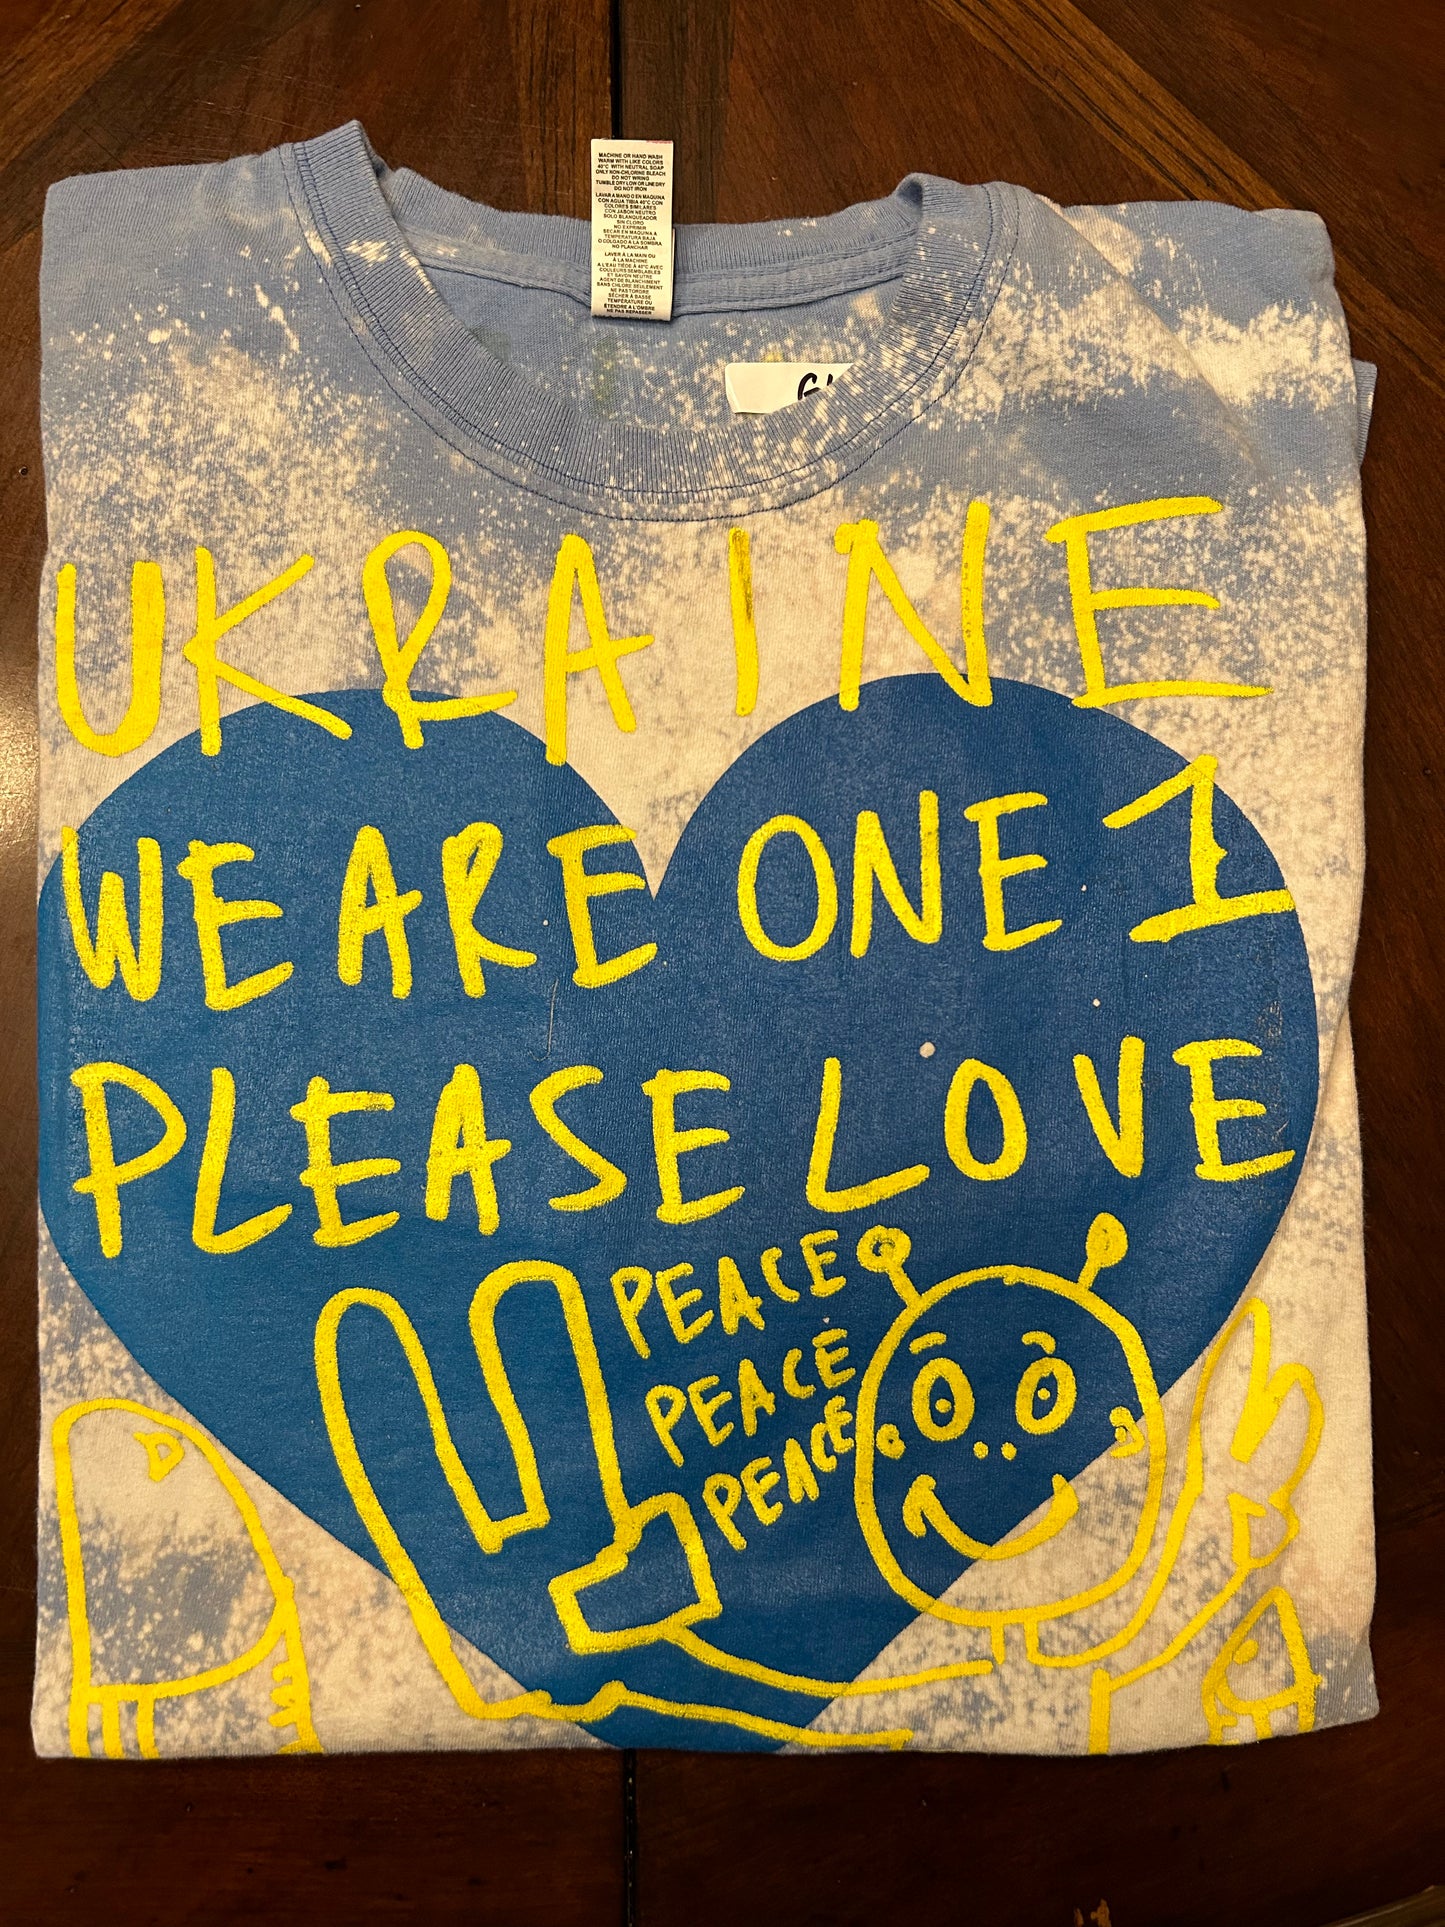 MACHINE OR HAND WASH
WARM WITH LIKE COLORS
40°C WITH NEUTRAL SOAP
ONLY NON-CHLORINE BLEACH
DO NOT WRING
TUMBLE DRY LOW OR LINE DRY
DO NOT IRON
LAVAR A MANO O EN MAQUINA
CON AGUA TIBIA 40°C CON
COLORES SIMILARES
CON JABON NEUTRO
SOLO BLANQUEADOR
SIN CLORO
NO EXPRIMIR
SECAR EN MAQUINA A
TEMPERATURA BAJA
O COLGADO A LA SOMBRA
NO PLANCHAR
LAVER À LA MAIN OU
À LA MACHINE
A L'EAU TIÈDE À 40°C AVEC
COULEURS SEMBLABLES
ET SAVON NEUTRE
AGENT DE BLANCHIMENT
SANS CHLORE SEULEMENT
NE PAS TORDRE
SÉCHER À BASSE
TEMPÉRATURE OU
ÉTENDRE A L'OMBRE
NE PAS REPASSER
UKRAINE
WE ARE ONE 1
PLEASE LOVE
PEACE
PEACE
PEACE